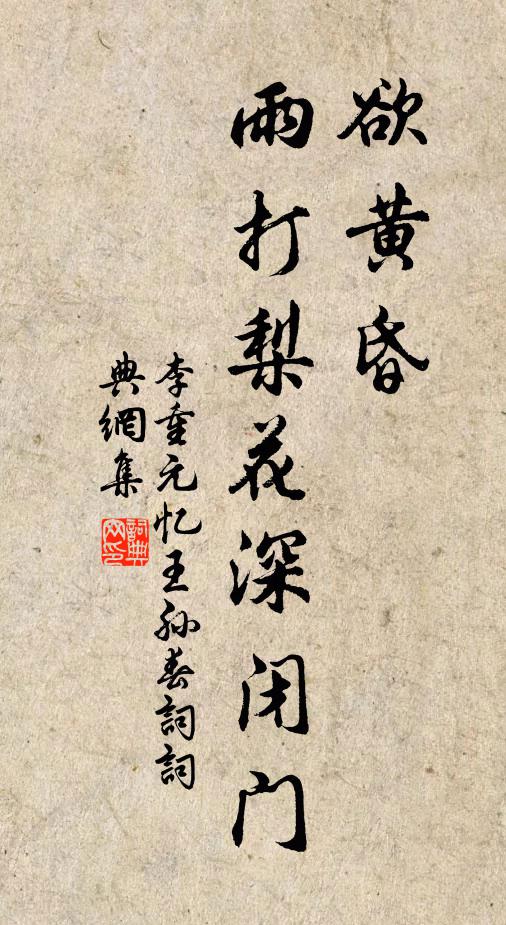 欲黄昏
雨打梨花深闭门
李重元忆王孙春詞詞
典網集
詞典网印